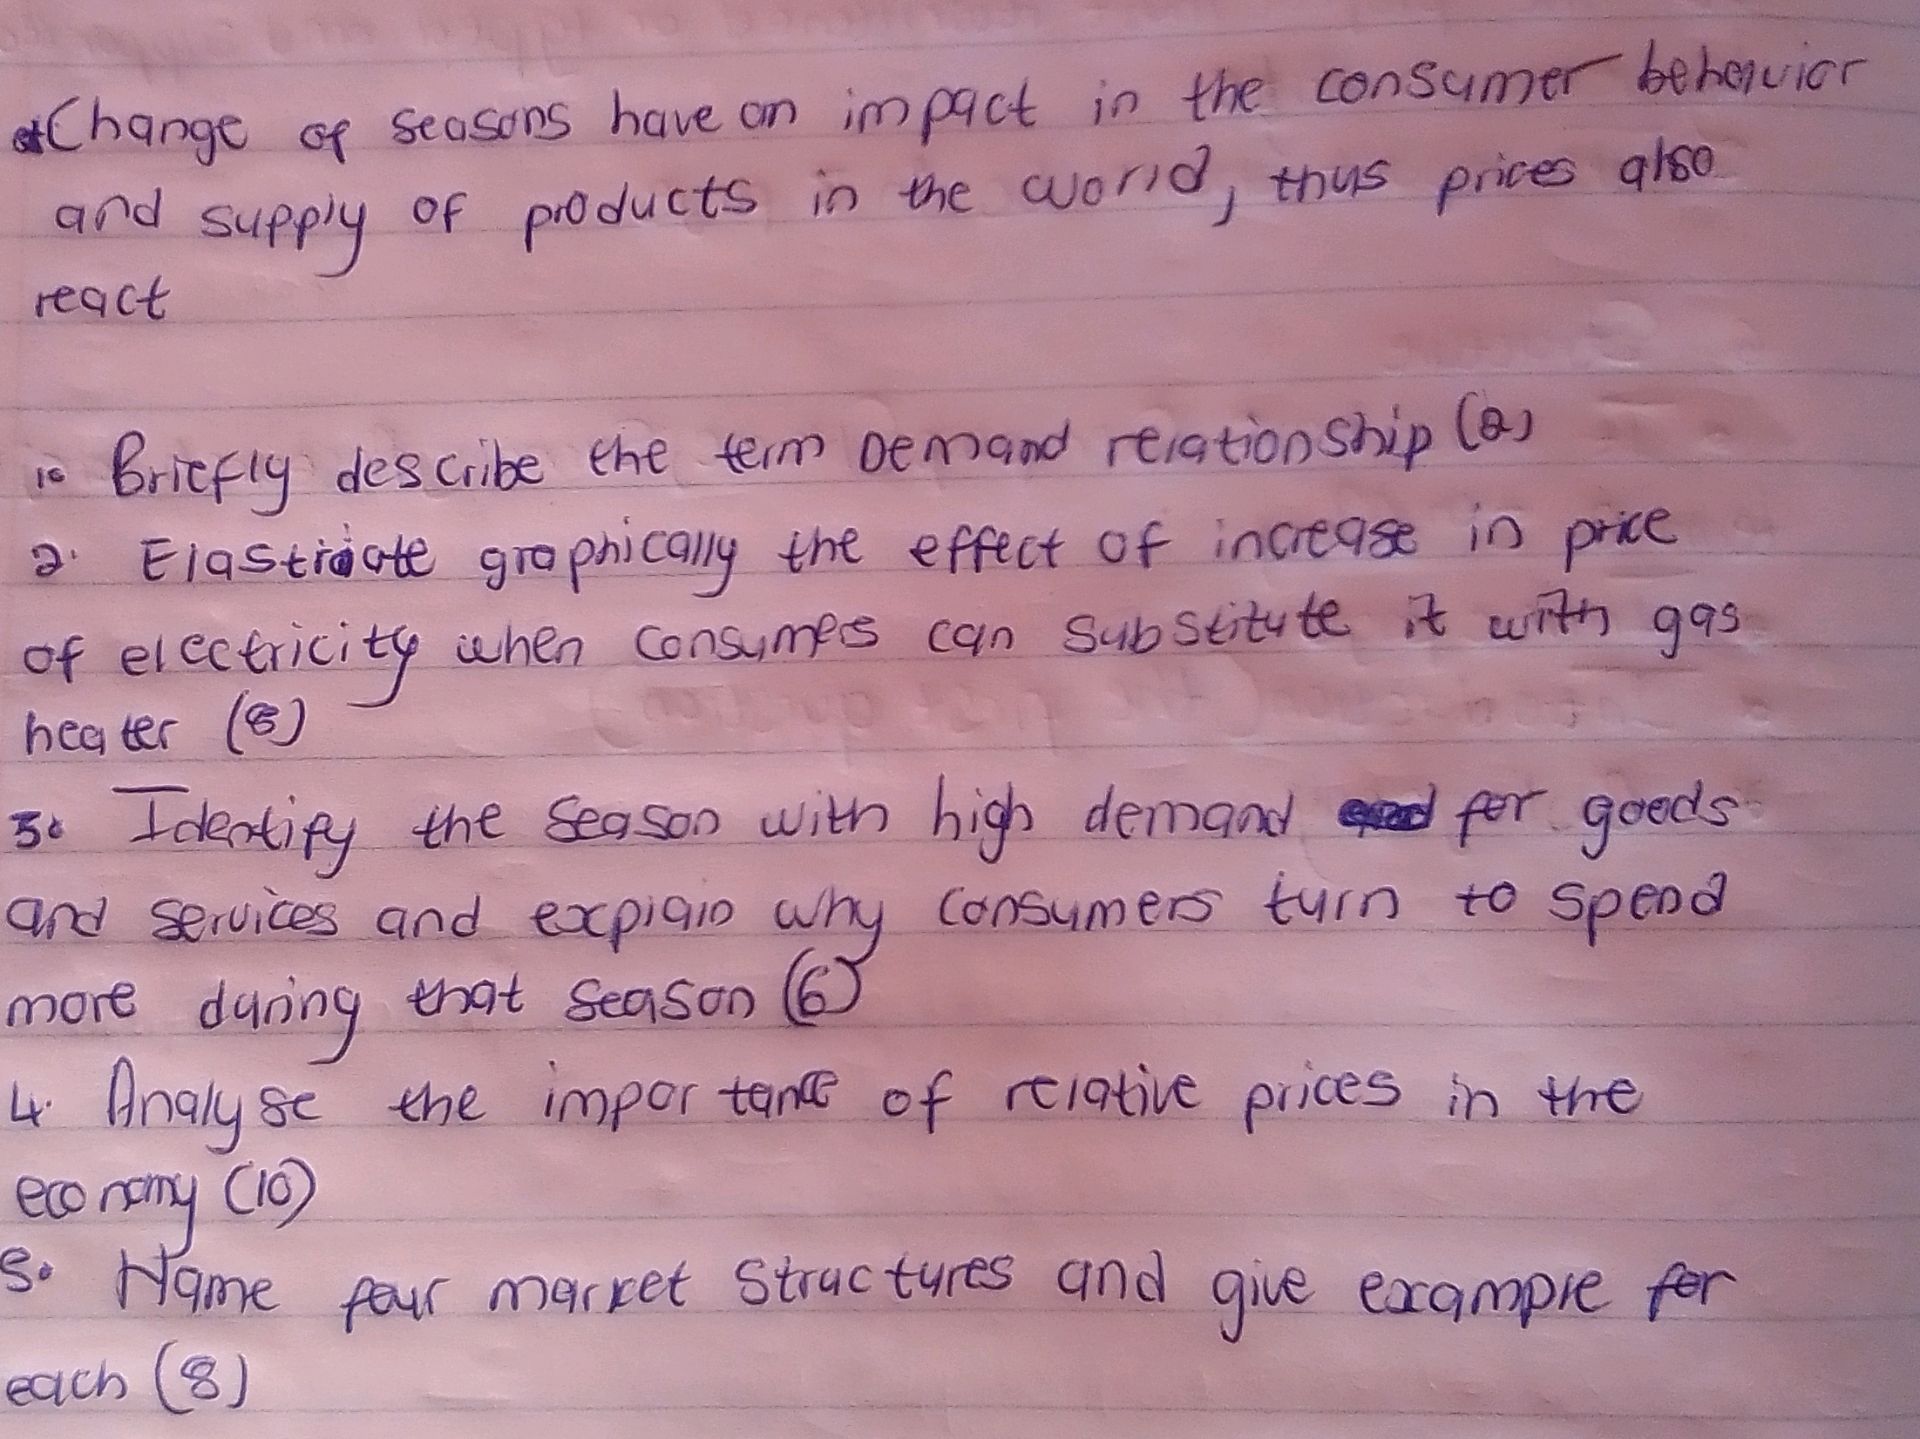 Change of seasons have an impact in the consumer behavior
and supply of products in the world, thus prices also
react
1. Briefly describe the term Demand relationship (2)
2. Elastrate graphically the effect of increase in price
of electricity when consumers can substitute it with gas
heater (8)
3. Identify the season with high demand for goods
and services and explain why consumers turn to spend
more during that season (6)
4. Analyse the importance of relative prices in the
economy (10)
5. Name four market structures and give example for
each (8)